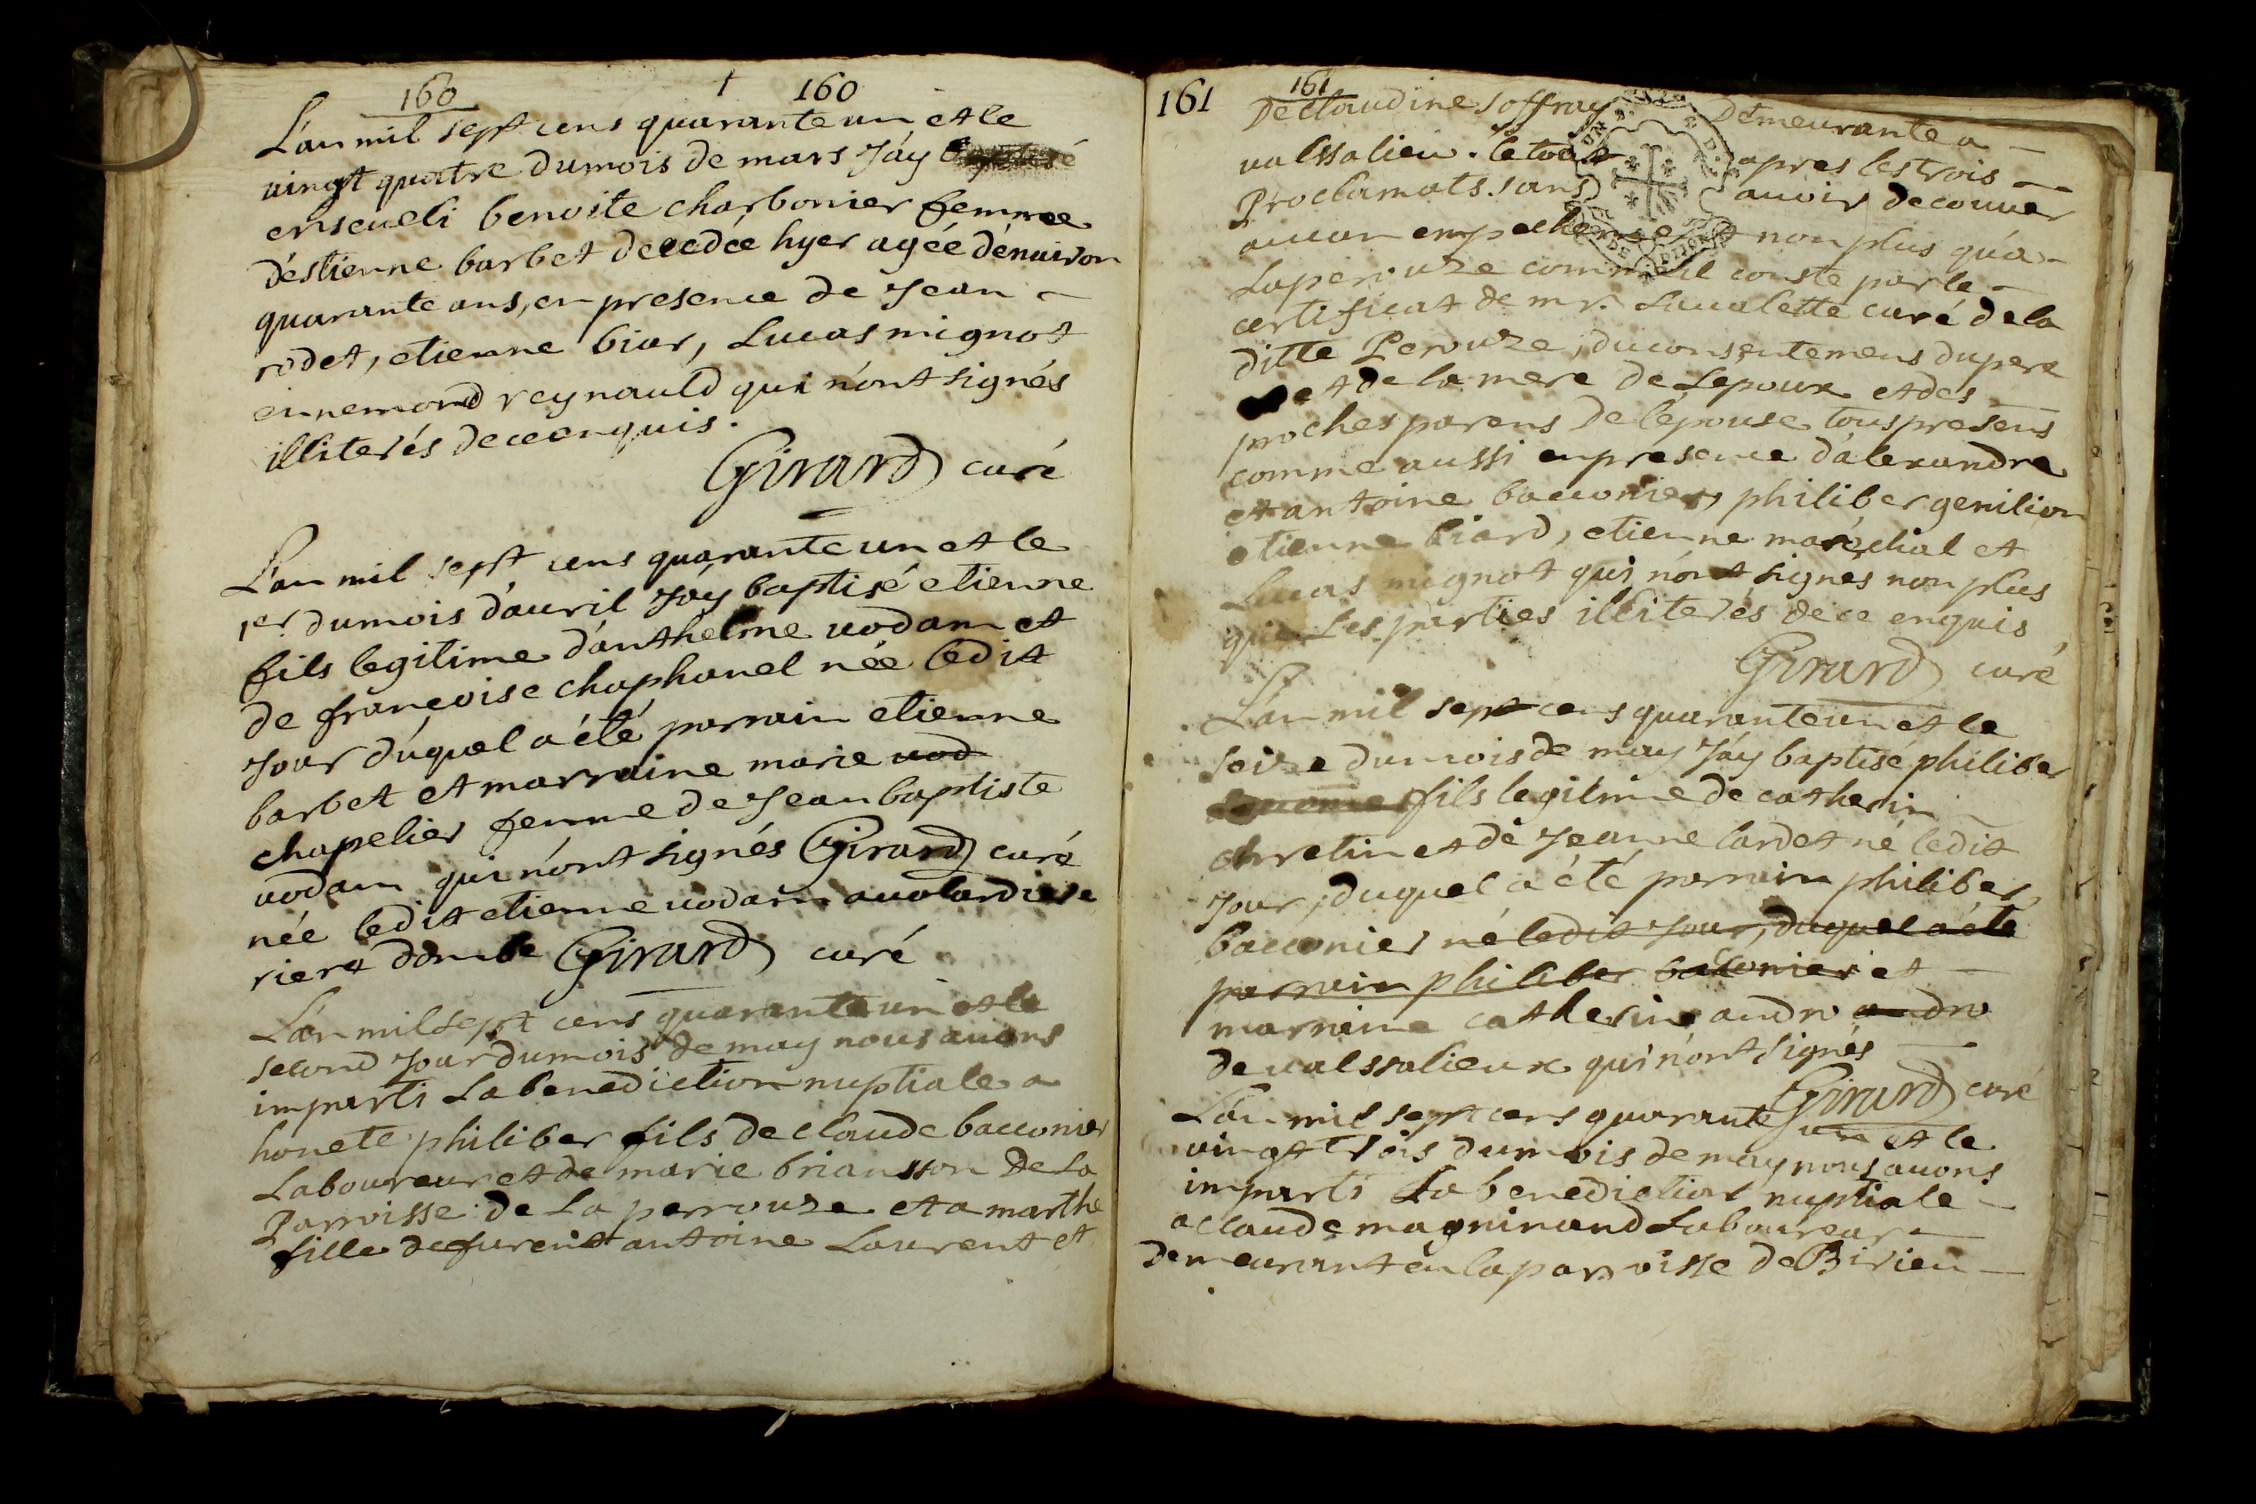 160 160
L'an mil sept cens quarante un et le
vingt quatre du mois de mars J'áy
enseueli benoite charbonier femme
d'éstienne barbet decedée hyer agéé d'enuiron
quarante ans, en presence de Jean
rodet, etienne biar, Lucas mignot
ennemond reynauld qui n'ónt signés
illiterés de ce enquis.
Girard curé
L'an mil sept cens quarante un et le
1er. du mois d'auril J'áy baptisé etienne
fils legitime d'anthelme uodam et
de françoise chaphanel née ledit
Jour dúquel a été parrain etienne
barbet et marraine marie uod
chapelier femme de Jean baptiste
uodam qui n'ónt signés Girard curé
née ledit etienne uodam auolardiere
riere dombe Girard curé
L'an mil sept cens quarante un et le
second Jour du mois de may nous auons
imparti La benediction nuptiale a
honete philiber fils de claude bacconier
Laboureur et de marie briansson de La
Parroisse de La perrouze et a marthe
fille defurent antoine Laurent et
161 161
De claudine soffray Demeurante a
ualssalieu. le tout apres les trois
Proclamats. sans auoir decouuer
aucun empechement non plus qu'a
Laperouze comme il conste par le
certificat de mr. Laualette curé de la
ditte Perouze, du consentemens du pere
et de la mere de Lepoux et des
proches parens de l'epouse tous presens
comme aussi en presence d'alexandre
et antoine bacconier, philiber genilion
etienne biard, etienne maréchal et
Lucas mignot qui n'ónt signés non plus
que Les parties illiterés de ce enquis
Girard curé
L'an mil sept cens quarante un et le
seize du mois de may J'áy baptisé philiber
fils legitime de catherin
chretin et de Jeanne lardet né ledit
Jour, duquel a été parrain philiber
bacconier né ledit Jour, duquel a été
parrain philiber baconier et
marraine catherine andro andro
de ualssalieux qui n'ont signés
Girard curé
L'an mil sept cens quarante un et le
vingt trois du mois de may nous auons
imparti La benediction nuptiale
a claude magninand Laboureur
demeurant en la parroisse de Birieu